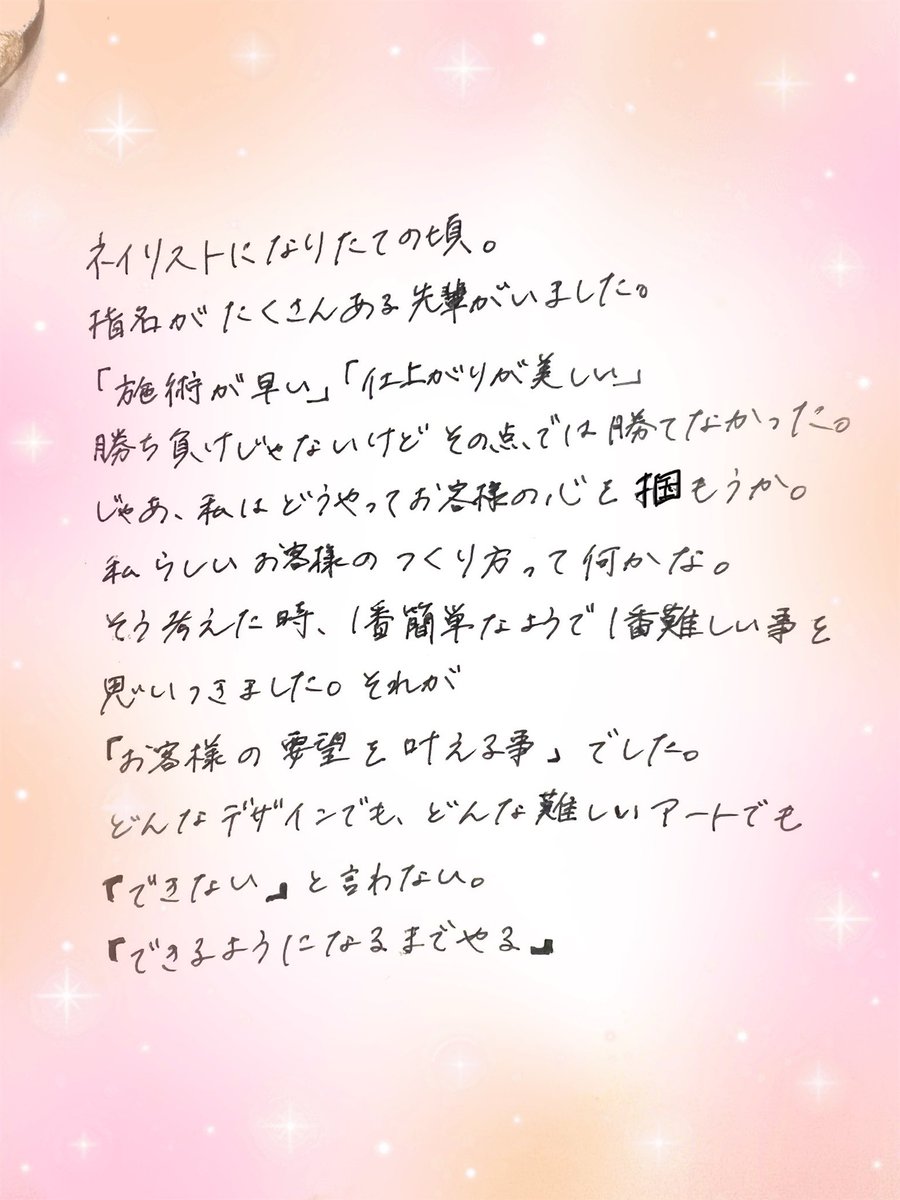 ネイリストになりたての頃。
指名がたくさんある先輩がいました。
「施術が早い」「仕上がりが美しい」
勝ち負けじゃないけどその点では勝てなかった。
じゃあ、私はどうやってお客様の心を掴もうか。
私らしいお客様のつくり方って何かな。
そう考えた時、1番簡単なようで1番難しい事を
思いつきました。それが
「お客様の要望を叶える事」でした。
どんなデザインでも、どんな難しいアートでも
『できない』と言わない。
『できるようになるまでやる』